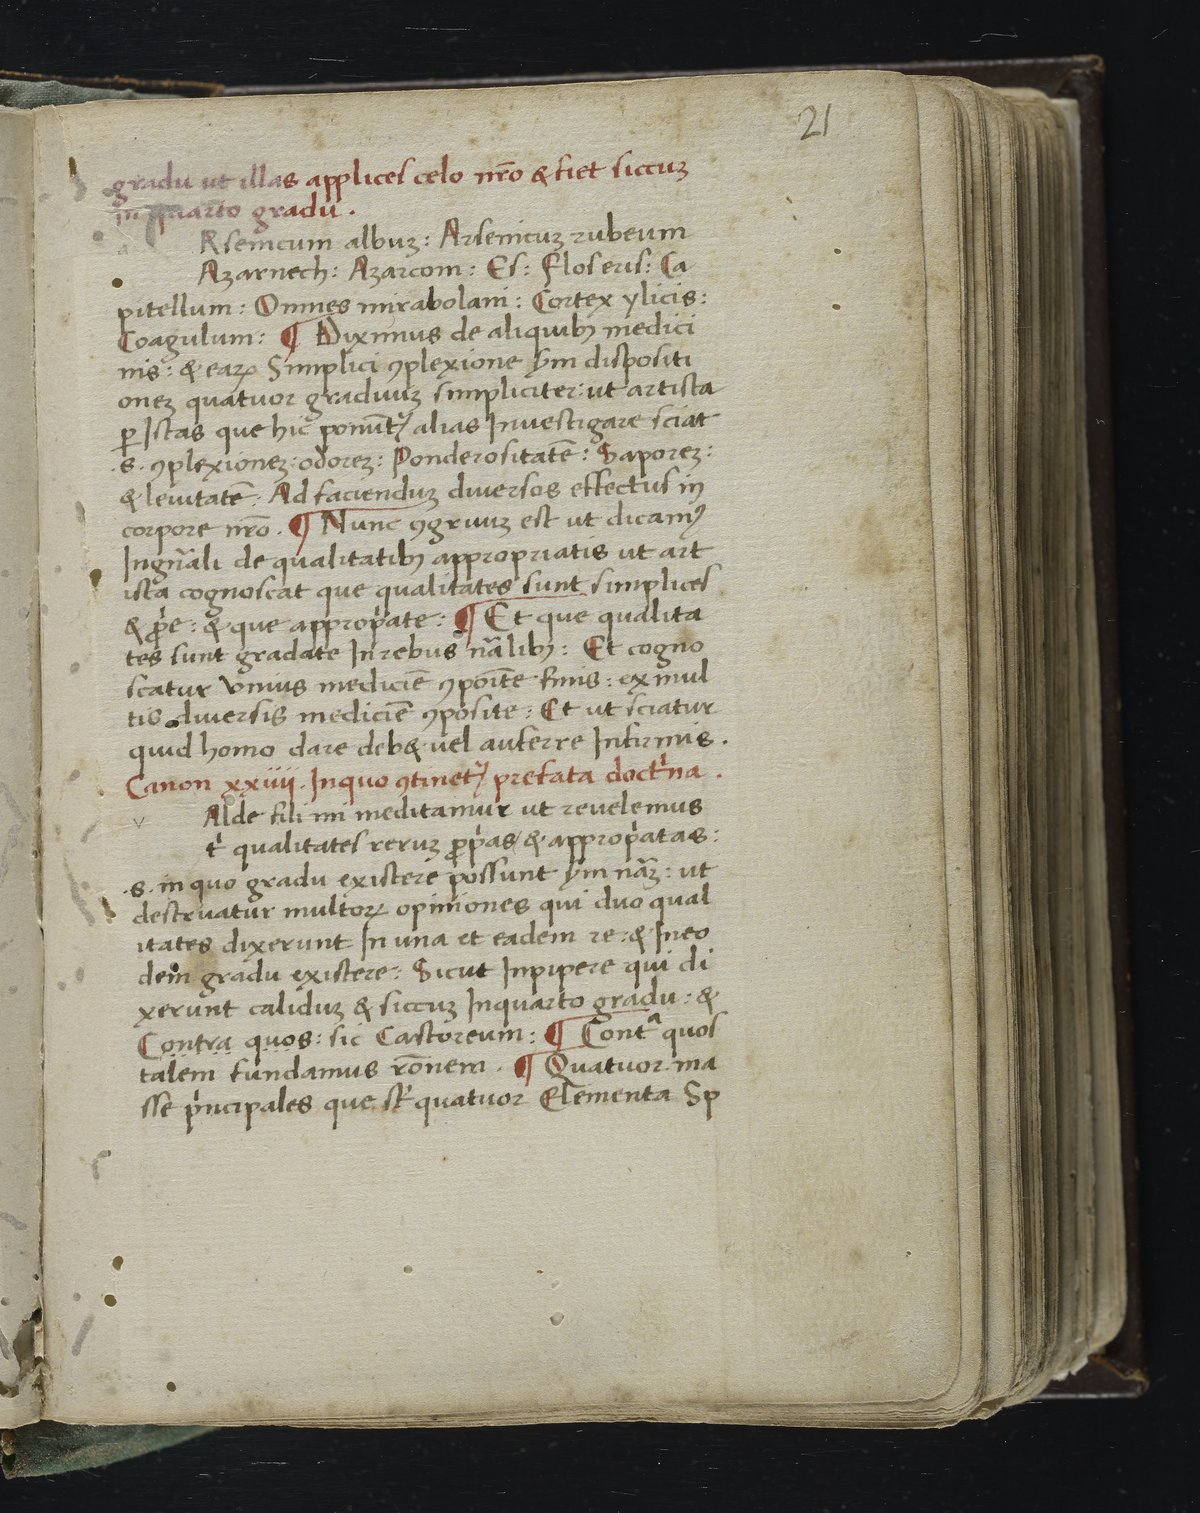 21
gradu ut illas applices celo nr̄o & fiet siccuʒ
in quarto gradu .
a Rsenicum albuʒ : Arsenicuʒ rubeum
Azarnech : Azarcom : Es : flos eris : Ca
pitellum : Omnes mirabolani : Cortex ylicis :
Coagulum : ¶ Diximus de aliquibꝫ medici
nis : & earꝝ Simplici ꝯplexione ẏm dispositi
oneʒ quatuor graduuʒ simpliciter : ut artista
ꝑ Istas que hic ponūtʼ alias Inuestigare sciat
.s. ꝯplexioneʒ : odoreʒ : Ponderositatē : Saporeʒ :
& leuitatē . Ad facienduʒ diuersos effectus in
corpore nr̄o . ¶ Nunc ꝯgruuʒ est ut dicamꝰ
Ingn̄ali de qualitatibꝫ appropriatis ut art
ista cognoscat que qualitates sunt simplices
& ꝓp̍e : & que approp̍ate : ¶ Et que qualita
tes sunt gradate In rebus nālibꝫ : Et cogno
scatur vnius mediciē ꝯpoīte finis : ex mul
tis diuersis mediciē ꝯposite : Et ut sciatur
quid homo dare deb& uel auferre Infirmis .
Canon xxiiij . In quo ꝯtinetʼ prefata doct̍na .
v Alde fili mi meditamur ut reuelemus
t̍ qualitates reruʒ ꝓp̍as / & approp̍atas :
.s. in quo gradu existere possunt ẏm nāʒ : ut
destruatur multorꝝ opiniones qui duo qual
itates dixerunt In una et eadem re : & In eo
dem gradu existere : Sicut In pipere qui di
xerunt calidum & siccuʒ In quarto gradu : &
Contra quos : sic Castoreum : ¶ Contᵃ quos
talem fundamus rōnem . ¶ Quatuor ma
sse p̍ncipales que st̍ quatuor Elementa Sp